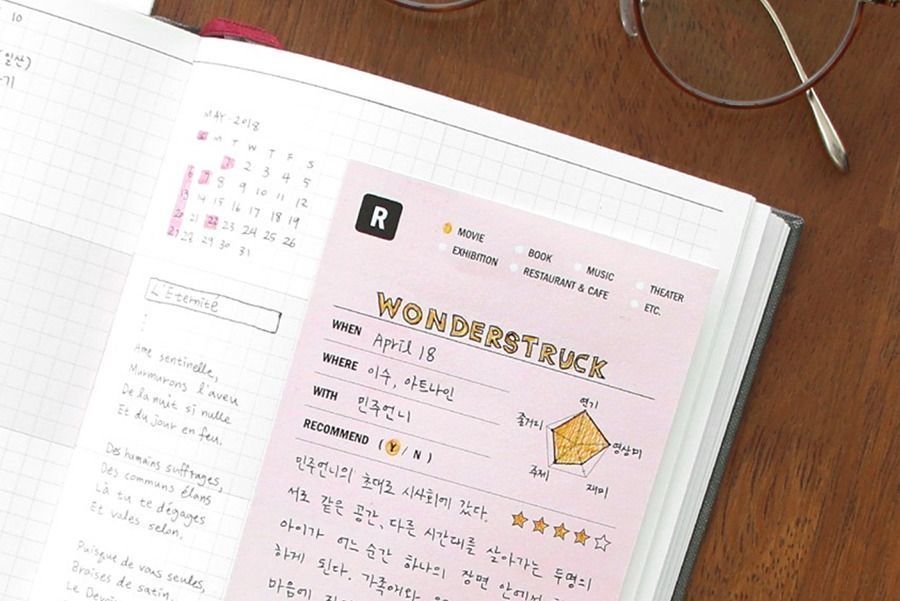 10
일산)
기
MAY·2018
S M T W T F S
1 2 3 4 5
6 7 8 9 10 11 12
13 14 15 16 17 18 19
20 21 22 23 24 25 26
27 28 29 30 31
L'Eternité
Ame sentinelle,
Murmurons l'aveu
De la nuit si nulle
Et du jour en feu.
Des humains suffrages,
Des communs élans
Là tu te dégages
Et voles selon.
Puisque de vous seules,
Braises de satin,
Le Devoir
R
MOVIE
BOOK
MUSIC
THEATER
EXHIBITION
RESTAURANT & CAFE
ETC.
WONDERSTRUCK
WHEN April 18
WHERE 이수, 아트나인
WITH 민주언니
RECOMMEND ( Y / N )
연기
줄거리
영상미
주제
재미
민주언니의 초대로 시사회에 갔다.
서로 같은 공간, 다른 시간대를 살아가는 두명의
아이가 어느 순간 하나의 장면 안에서
하게 된다. 가족애와
마음에